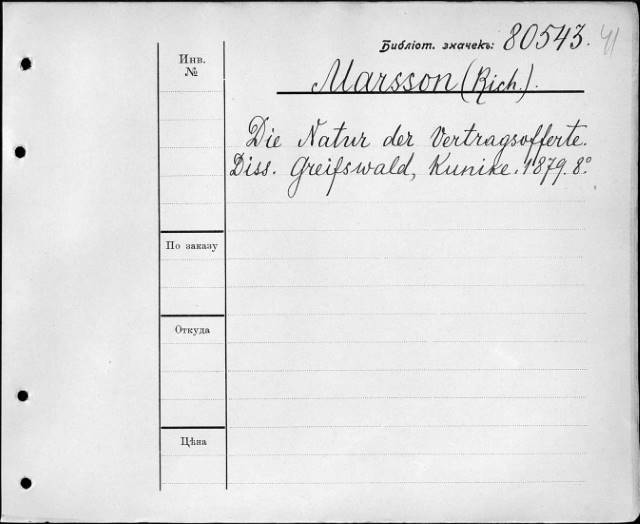 Библіот. значекъ: 80543. 41
Инв.
№
Marsson (Rich.).
Die Natur der Vertragsofferte.
Diss. Greifswald, Kunike. 1879. 8º
По заказу
Откуда
Цѣна